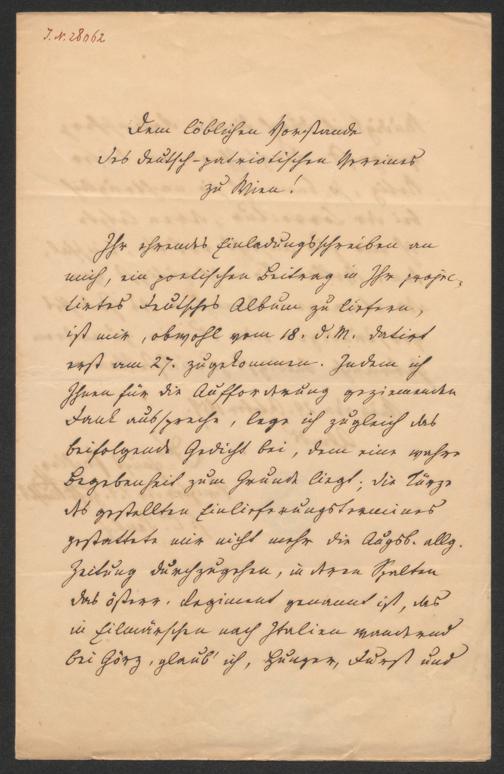 J.N. 28062
Dem löblichen Vorstande
des deutsch-patriotischen Vereines
zu Wien!
Ihr ehrendes Einladungsschreiben an
mich, ein poetischen Beitrag in Ihr projec-
tirtes Deutsches Album zu liefern,
ist mir, obwohl vom 18. d.M. datirt
erst am 27. zugekommen. Indem ich
Ihnen für die Aufforderung geziemenden
Dank ausspreche, lege ich zugleich das
beifolgende Gedicht bei, dem eine wahre
Begebenheit zum Grunde liegt; die Kürze
des gestellten Einlieferungstermines
gestattete mir nicht mehr die Augsb. allg.
Zeitung durchzugehen, in deren Spalten
das österr. Regiment genannt ist, das
in Eilmärschen nach Italien wandernd
bei Görz, glaub' ich, Hunger, Durst und